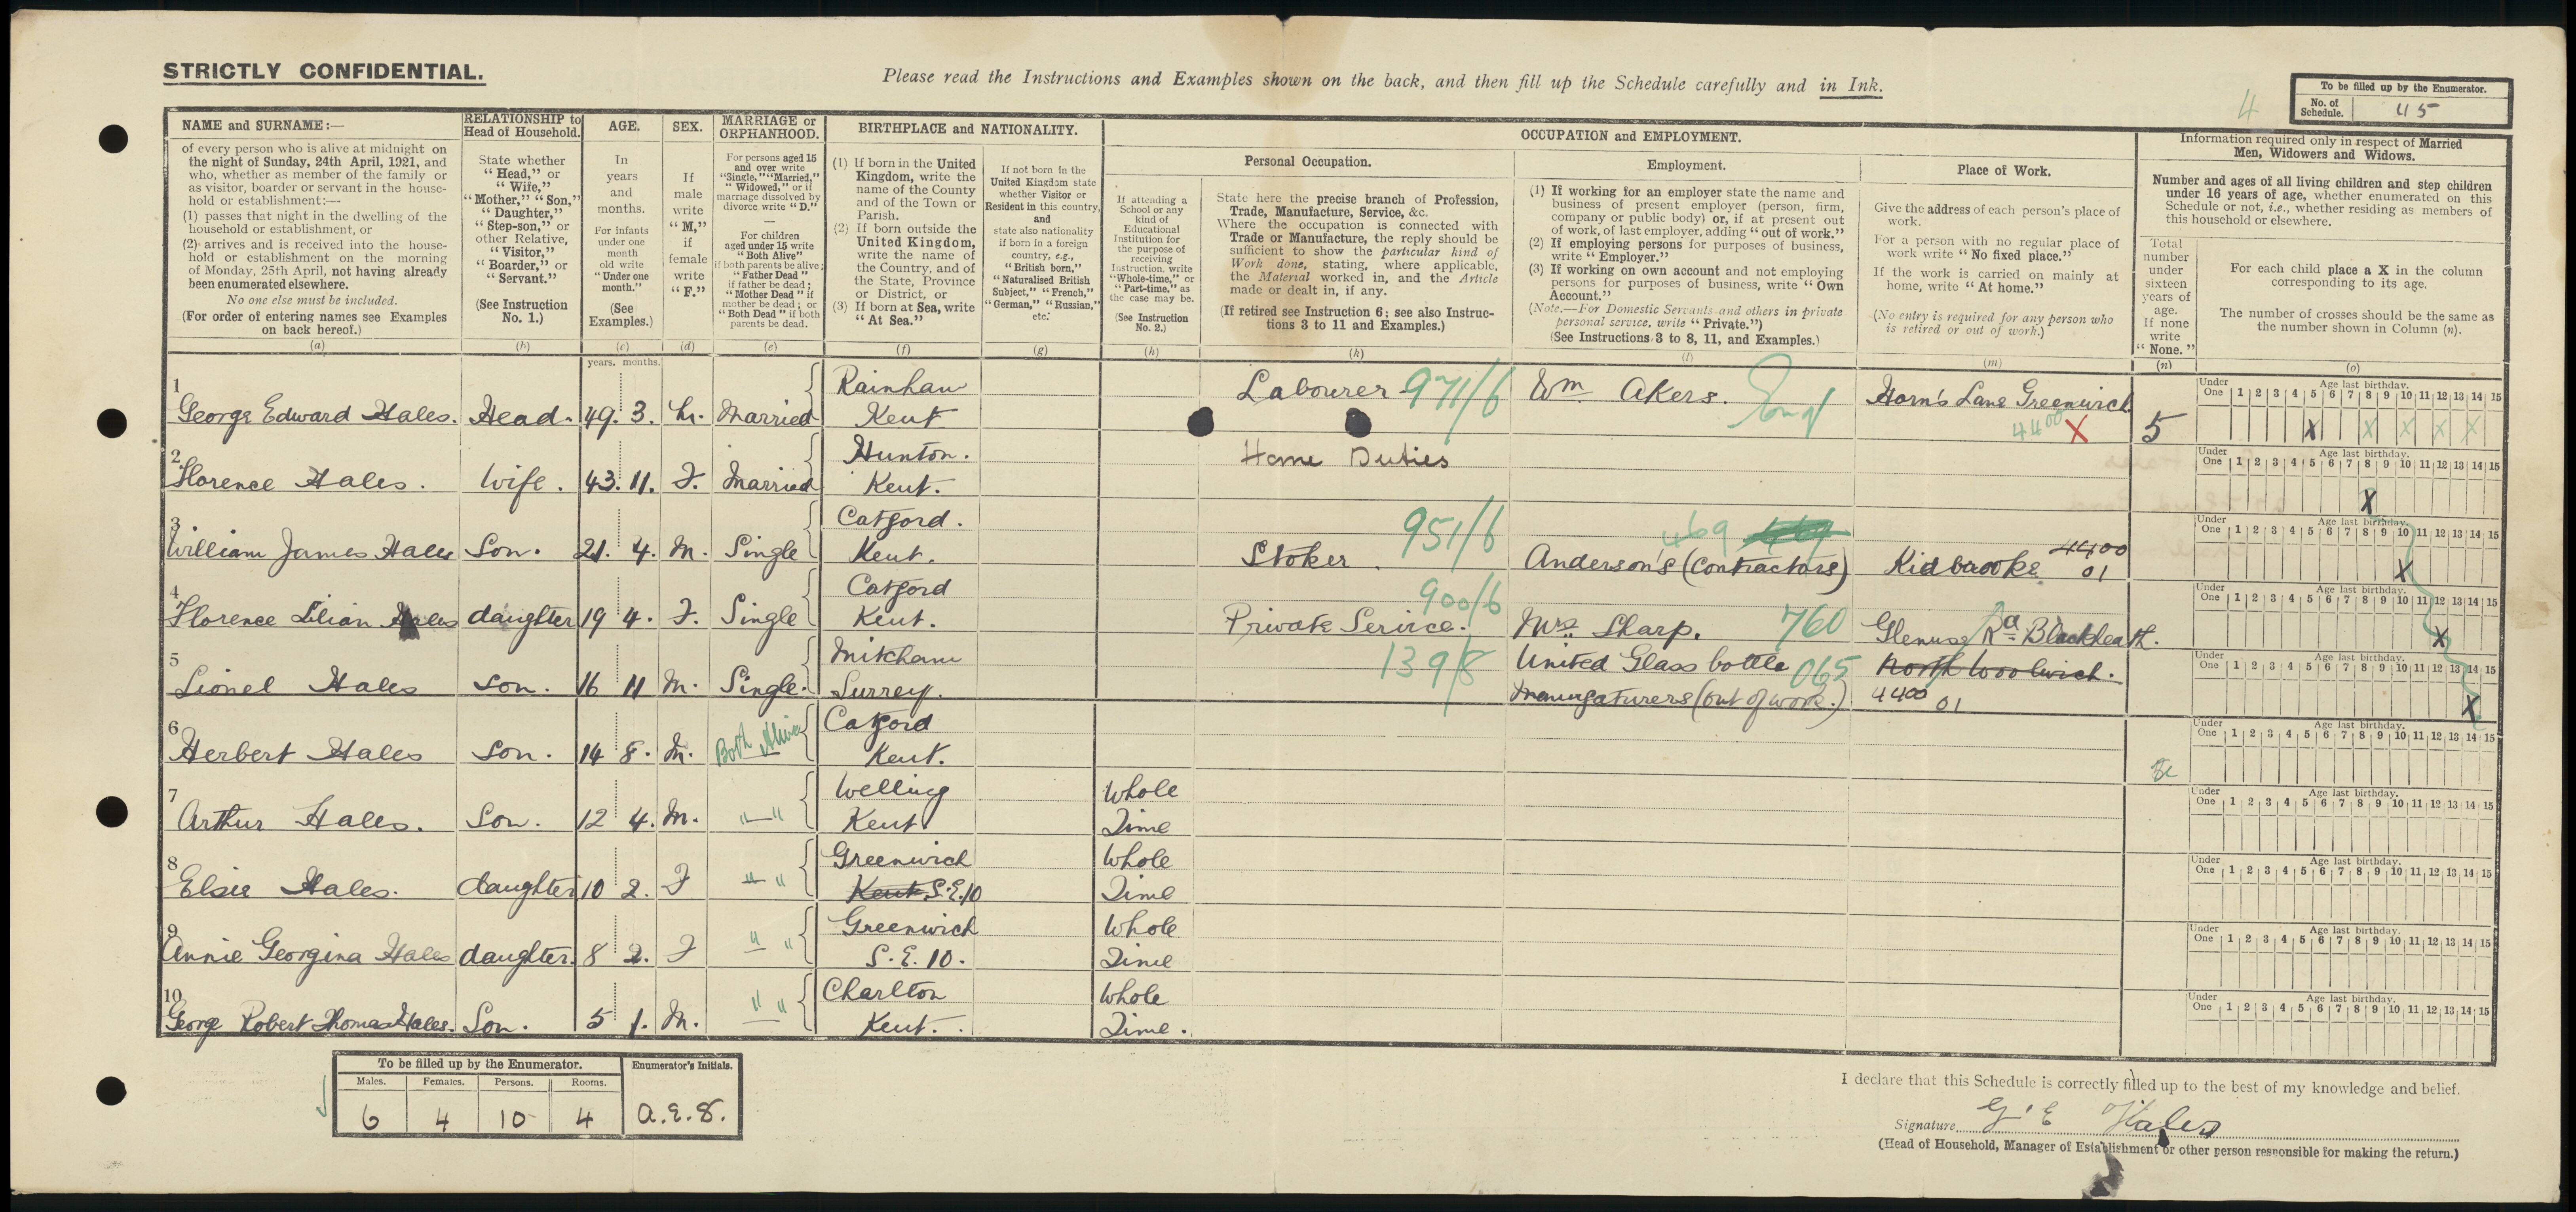 STRICTLY CONFIDENTIAL.
Please read the Instructions and Examples shown on the back, and then fill up the Schedule carefully and in Ink.
4
To be filled up by the Enumerator.
No. of Schedule. 45
NAME and SURNAME:—
of every person who is alive at midnight on
the night of Sunday, 24th April, 1921, and
who, whether as member of the family or
as visitor, boarder or servant in the house-
hold or establishment:—
(1) passes that night in the dwelling of the
household or establishment, or
(2) arrives and is received into the house-
hold or establishment on the morning
of Monday, 25th April, not having already
been enumerated elsewhere.
No one else must be included.
(For order of entering names see Examples
on back hereof.)
(a)
RELATIONSHIP to
Head of Household.
State whether
"Head," or
"Wife,"
"Mother," "Son,"
"Daughter,"
"Step-son," or
other Relative,
"Visitor,"
"Boarder," or
"Servant."
(See Instruction
No. 1.)
(b)
AGE.
In
years
and
months.
For infants
under one
month
old write
"Under one
month."
(See
Examples.)
(c)
years. months.
SEX.
If
male
write
"M,"
if
female
write
"F."
(d)
MARRIAGE or
ORPHANHOOD.
For persons aged 15
and over write
"Single," "Married,"
"Widowed," or if
marriage dissolved by
divorce write "D."
—
For children
aged under 15 write
"Both Alive"
if both parents be alive;
"Father Dead"
if father be dead;
"Mother Dead" if
mother be dead; or
"Both Dead" if both
parents be dead.
(e)
BIRTHPLACE and NATIONALITY.
(1) If born in the United
Kingdom, write the
name of the County
and of the Town or
Parish.
(2) If born outside the
United Kingdom,
write the name of
the Country, and of
the State, Province
or District, or
(3) If born at Sea, write
"At Sea."
(f)
If not born in the
United Kingdom state
whether Visitor or
Resident in this country,
and
state also nationality
if born in a foreign
country, e.g.,
"British born,"
"Naturalised British
Subject," "French,"
"German," "Russian,"
etc.
(g)
OCCUPATION and EMPLOYMENT.
If attending a
School or any
kind of
Educational
Institution for
the purpose of
receiving
Instruction, write
"Whole-time," or
"Part-time," as
the case may be.
(See Instruction
No. 2.)
(h)
Personal Occupation.
State here the precise branch of Profession,
Trade, Manufacture, Service, &c.
Where the occupation is connected with
Trade or Manufacture, the reply should be
sufficient to show the particular kind of
Work done, stating, where applicable,
the Material worked in, and the Article
made or dealt in, if any.
(If retired see Instruction 6; see also Instruc-
tions 3 to 11 and Examples.)
(k)
Employment.
(1) If working for an employer state the name and
business of present employer (person, firm,
company or public body) or, if at present out
of work, of last employer, adding "out of work."
(2) If employing persons for purposes of business,
write "Employer."
(3) If working on own account and not employing
persons for purposes of business, write "Own
Account."
(Note.—For Domestic Servants and others in private
personal service, write "Private.")
(See Instructions 3 to 8, 11, and Examples.)
(l)
Place of Work.
Give the address of each person's place of
work.
For a person with no regular place of
work write "No fixed place."
If the work is carried on mainly at
home, write "At home."
(No entry is required for any person who
is retired or out of work.)
(m)
Information required only in respect of Married
Men, Widowers and Widows.
Number and ages of all living children and step children
under 16 years of age, whether enumerated on this
Schedule or not, i.e., whether residing as members of
this household or elsewhere.
Total
number
under
sixteen
years of
age.
If none
write
"None."
(n)
For each child place a X in the column
corresponding to its age.
The number of crosses should be the same as
the number shown in Column (n).
(o)
1 George Edward Hales. Head. 49. 3. M. Married Rainham Kent Labourer 971/6 Wm Akers. Horn's Lane Greenwich 4400 X 5
Under One 1 2 3 4 5 6 7 8 9 10 11 12 13 14 15 Age last birthday. X X X X X
2 Florence Hales. Wife. 43. 11. F. Married Hunton. Kent. Home Duties
Under One 1 2 3 4 5 6 7 8 9 10 11 12 13 14 15 Age last birthday. X
3 William James Hales Son. 21. 4. M. Single Catford. Kent. Stoker. 951/6 469 Anderson's (Contractors) Kidbrooke 4400 01
Under One 1 2 3 4 5 6 7 8 9 10 11 12 13 14 15 Age last birthday. X
4 Florence Lilian Hales daughter 19 4. F. Single Catford Kent. Private Service. 900/6 Mrs Sharp. 760 Rd Blackheath.
Under One 1 2 3 4 5 6 7 8 9 10 11 12 13 14 15 Age last birthday. X
5 Lionel Hales Son. 16 11 M. Single. Mitcham Surrey. 139/8 United Glass bottle 065 Manufaturers (out of work.) North Woolwich. 4400 01
Under One 1 2 3 4 5 6 7 8 9 10 11 12 13 14 15 Age last birthday. X
6 Herbert Hales Son. 14 8. M. Both Alive Catford Kent.
Under One 1 2 3 4 5 6 7 8 9 10 11 12 13 14 15 Age last birthday.
7 Arthur Hales. Son. 12 4. M. " " Welling Kent Whole Time
Under One 1 2 3 4 5 6 7 8 9 10 11 12 13 14 15 Age last birthday.
8 Elsie Hales. daughter 10 2. F " " Greenwich Kent S.E.10 Whole Time
Under One 1 2 3 4 5 6 7 8 9 10 11 12 13 14 15 Age last birthday.
9 Annie Georgina Hales daughter. 8 2. F " " Greenwich S.E. 10. Whole Time
Under One 1 2 3 4 5 6 7 8 9 10 11 12 13 14 15 Age last birthday.
10 George Robert Thomas Hales. Son. 5 1. M. " " Charlton Kent. Whole Time.
Under One 1 2 3 4 5 6 7 8 9 10 11 12 13 14 15 Age last birthday.
To be filled up by the Enumerator.
Males. Females. Persons. Rooms. Enumerator's Initials.
6 4 10 4
I declare that this Schedule is correctly filled up to the best of my knowledge and belief.
Signature G E Hales
(Head of Household, Manager of Establishment or other person responsible for making the return.)